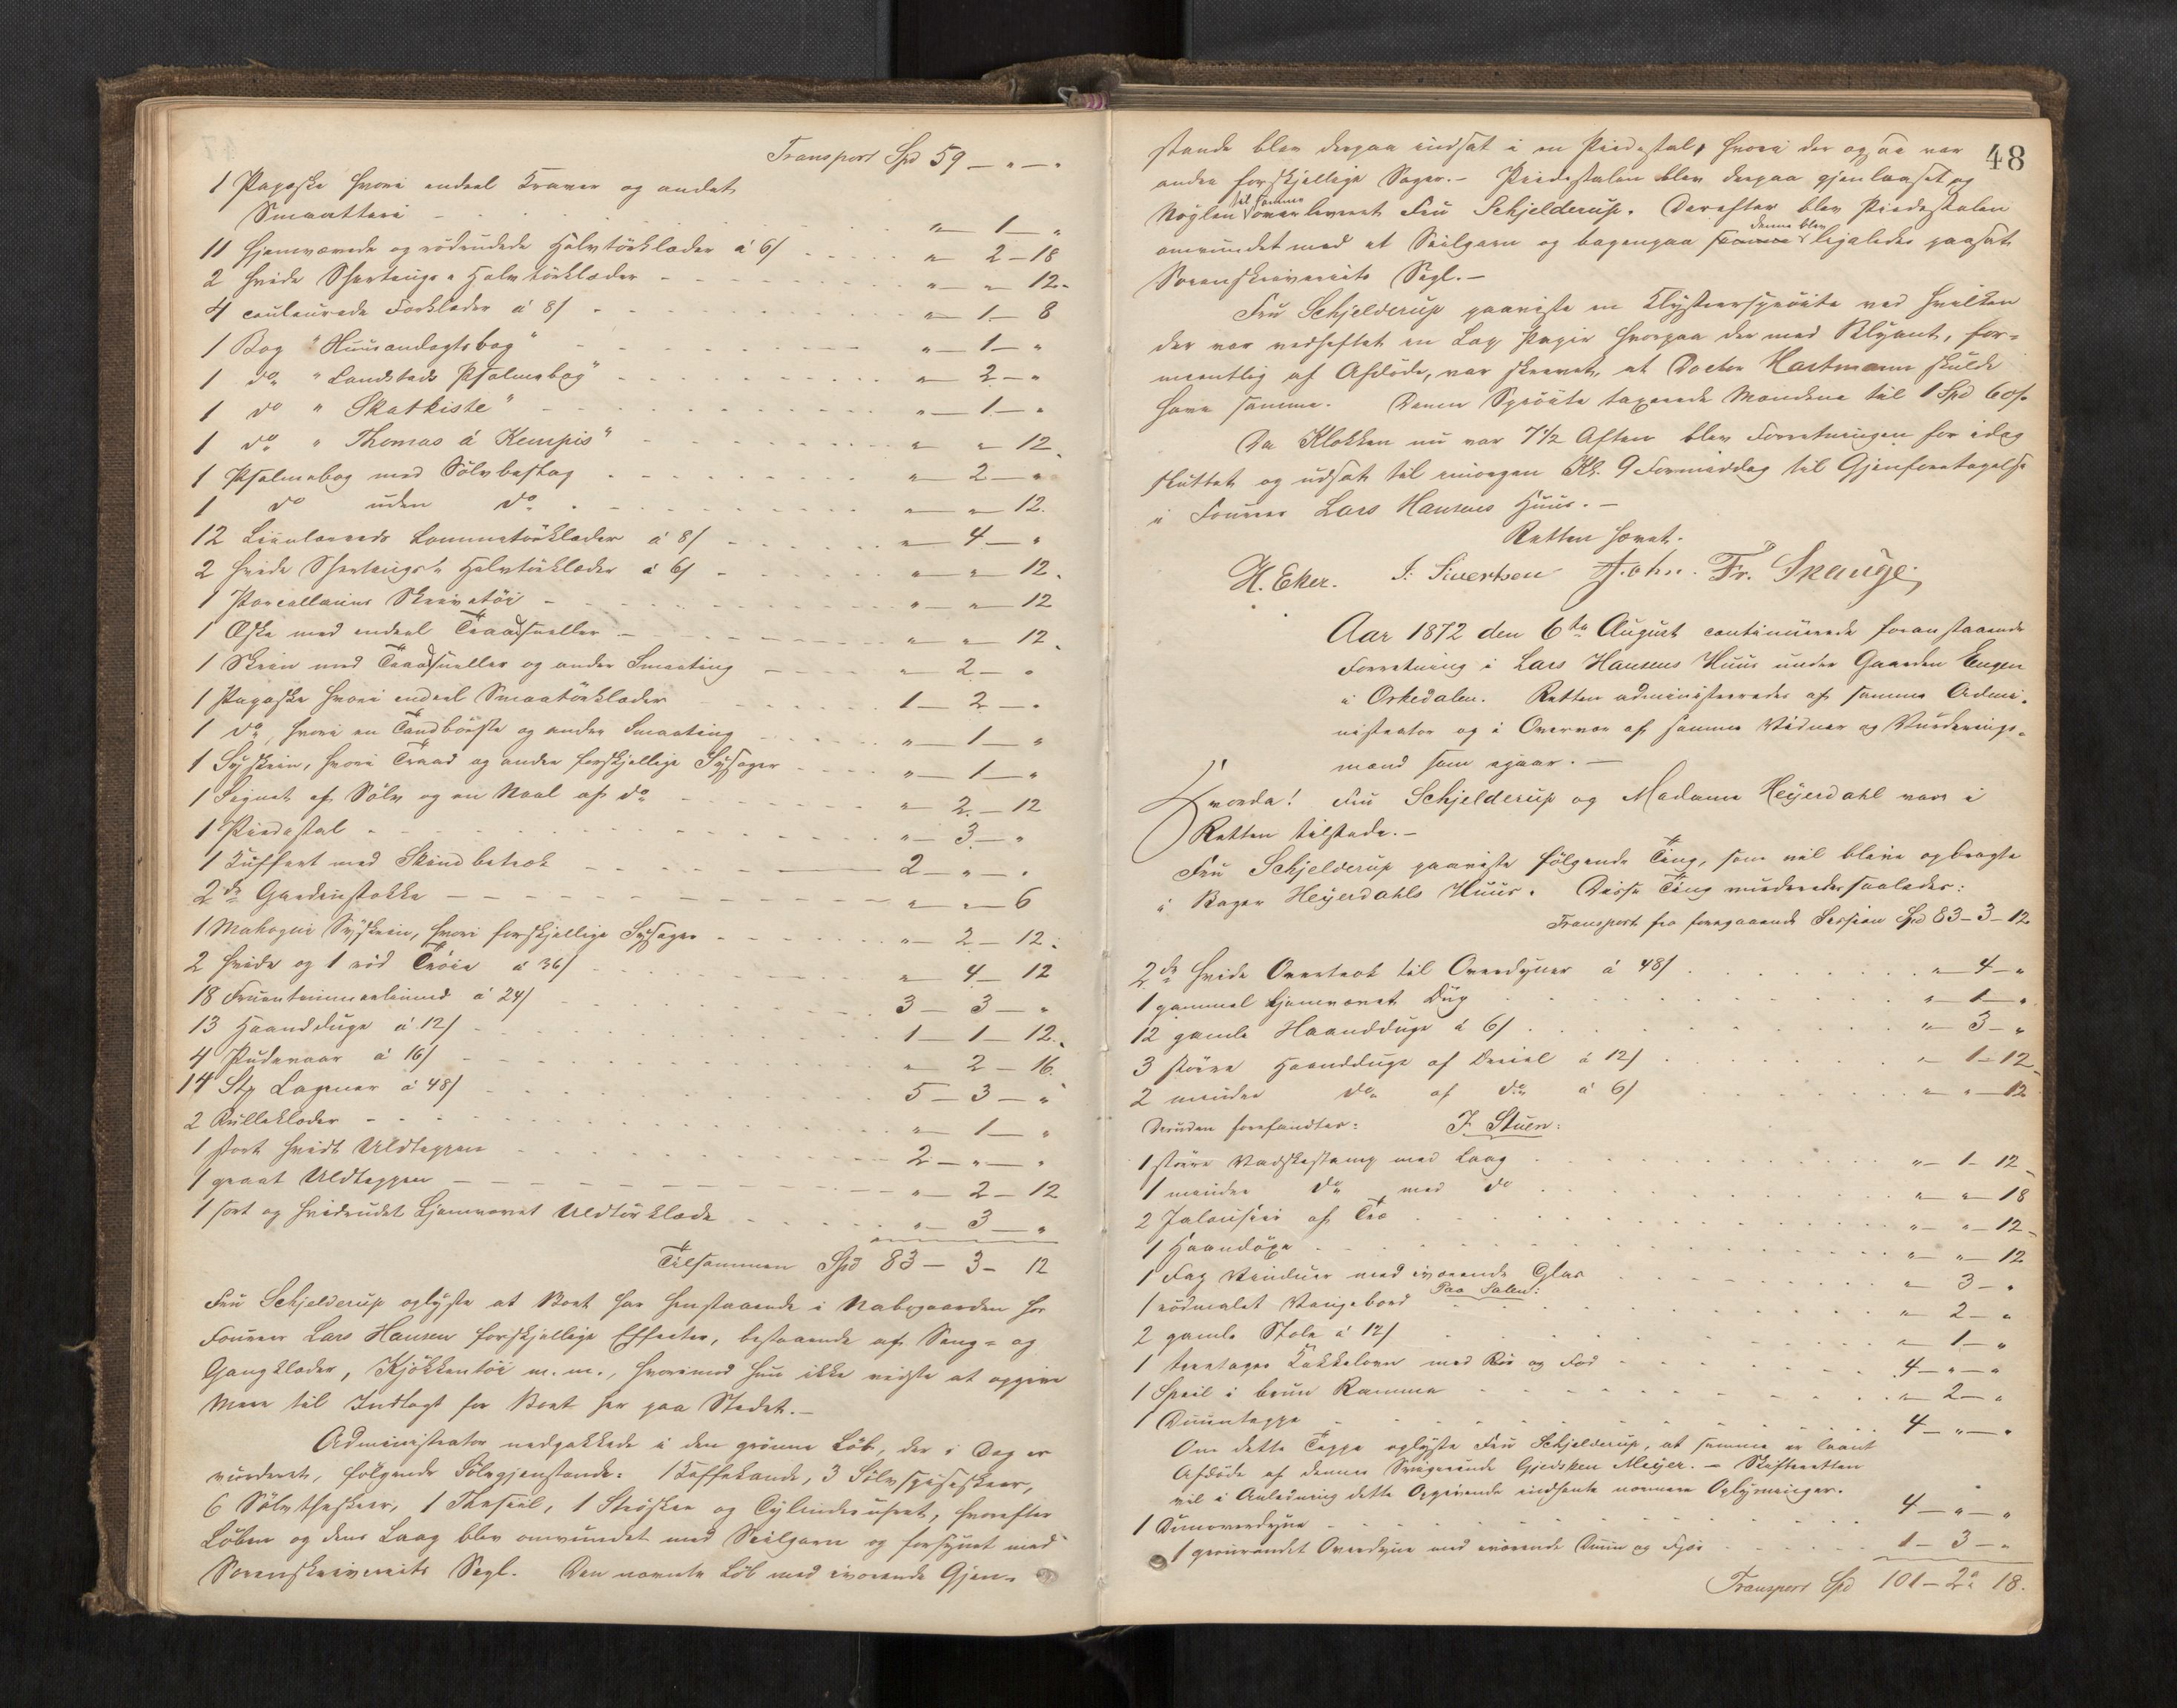 Transport Spd 59 — " — "
1 Papæske hvori endeel Kraver og andet
Smaatteri - " — 1 — "
11 hjemvævede og rödrudede Halvtörklæder á 6/ " — 2 — 18
2 hvide Shertings Halvtörklæder - " — " — 12.
4 couleurede Forklæder á 8/ - " — 1 — 8
1 Bog "Huusandagtsbog" " — 1 — "
1 do "Landstads Psalmebog" " — 2 — "
1 do "Skatkiste" " — 1 — "
1 do "Thomas á Kempis" " — " — 12.
1 Psalmebog med Sölvbeslag " — 2 — "
1 do uden do " — " — 12.
12 Liinlærreds Lommetörklæder á 8/ " — 4 — "
2 hvide Shertings Halvtörklæder á 6/ " — " — 12.
1 Porcellains Skrivetöi " — " — 12
1 Æske med endeel Traadsneller " — " — 12.
1 Skrin med Traadsneller og andre Smaating " — 2 — "
1 Papæske hvori endeel Smaatörklæder 1 — 2 — "
1 do, hvori en Tandbörste og andre Smaating " — 1 — "
1 Syskrin, hvori Traad og andre forskjellige Sysager " — 1 — "
1 Signet af Sölv og en Naal af do " — 2 — 12
1 Piedestal " — 3 — "
1 Kuffert med Skindbetræk 2 — " — "
2 de Gardinstokke " — " — 6
1 Mahogni Syskrin, hvori forskjellige Sysager " — 2 — 12.
2 hvide og 1 röd Tröie á 36/ " — 4 — 12
18 Fruentimmerlinned á 24/ 3 — 3 — "
13 Haandduge á 12/ 1 — 1 — 12.
4 Pudevaar á 16/ " — 2 — 16.
14 Stk Lagener á 48/ 5 — 3 — "
2 Rulleklæder " — 1 — "
1 stort hvidt Uldteppen 2 — " — "
1 graat Uldteppen " — 2 — 12
1 sort og hvidrudet hjemvævet Uldtörklæde " — 3 — "
Tilsammen Spd 83 — 3 — 12
Fru Schjelderup oplyste at Boet har henstaaende i Nabogaarden hos
Fourer Lars Hansen forskjellige Effecter, bestaaende af Seng- og
Gangklæder, Kjökkentöi m. m., hvorimod hun ikke vidste at opgive
Mere til Indtægt for Boet her paa Stedet.-
Administrator nedpakkede i den grönne Löb, der i Dag er
vurderet, fölgende Sölvgjenstande: 1 Kaffekande, 3 Sölvspiseskeer,
6 Sölvtheskeer, 1 Thesiil, 1 Ströskee og Cylinderuhret, hvorefter
Löben og dens Laag blev omvundet med Seilgarn og forsynet med
Sorenskriveriets Segl. Den nævnte Löb med iværende Gjen-
48
stande blev derpaa indsat i en Piedestal, hvori der ogsaa var
andre forskjellige Sager.- Piedestalen blev derpaa gjenlaaset og
til samme
Nöglen overleveret Fru Schjelderup. Derefter blev Piedestalen
denne blev
omvundet med et Seilgarn og bagenpaa samme ligeledes paasat
Sorenskriveriets Segl.-
Fru Schjelderup paaviste en Klysteersproite ved hvilken
der var vedheftet en Lap Papir hvorpaa der med Blyant, for-
mentlig af Afdöde, var skrevet, at Doctor Hartmann skulde
have samme. Denne Spröite taxerede Mændene til 1 Spd 60/.
Da Klokken nu var 7½ Aften blev Forretningen for idag
sluttet og udsat til imorgen Kl. 9 Formiddag til Gjenforetagelse
i Fourer Lars Hansens Huus.-
Retten hævet.
H. Eker. I. Sivertsen John. Fr. Skauge,
Aar 1872 den 6te August continuerede foranstaaende
Forretning i Lars Hansens Huus under Gaarden Engen
i Orkedalen. Retten administreredes af samme Admi-
nistrator og i Overvær af samme Vidner og Vurderings-
mænd som igaar.-
Hvorda! Fru Schjelderup og Madame Heyerdahl var i
Retten tilstede.-
Fru Schjelderup paaviste fölgende Ting, som vil blive opbragte
i Bager Heyerdahls Huus. Disse Ting vurderedes saaledes:
Transport fra foregaaende Session Spd 83 — 3 — 12
2 de hvide Overtræk til Overdyner á 48/ " — 4 — "
1 gammel hjemvævet Dug " — 1 — "
12 gamle Haandduge á 6/ " — 3 — "
3 större Haandduge af Dreiel á 12/ " — 1 — 12
2 mindre do af do á 6/ " — " — 12
Desuden forefandtes: I Stuen:
1 större Vadskestamp med Laag " — 1 — 12
1 mindre do med do " — " — 18
2 Jalousier af Træ " — " — 12
1 Haandöxe " — " — 12
1 Fag Vinduer med iværende Glas " — 3 — "
Paa Salen:
1 rödmalet Vangebord " — 2 — "
2 gamle Stole á 12/ " — 1 — "
1 treetages Kakkelovn med Rör og Fod 4 — " — "
1 Speil i bruun Ramme " — 2 — "
1 Duunteppe 4 — " — "
Om dette Teppe oplyste Fru Schjelderup, at samme er laant
Afdöde af dennes Svigerinde Gjedsken Meyer. - Skifteretten
vil i Anledning dette Opgivende indhente nærmere Oplysninger.
1 Duunoverdyne 4 — " — "
1 grönrandet Overdyne med iværende Duun og Fjær 1 — 3 — "
Transport Spd 101 — 2 — 18.